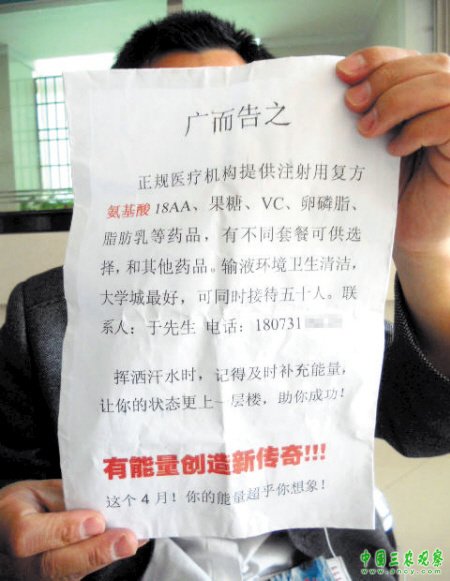 广而告之
正规医疗机构提供注射用复方
氨基酸18AA、果糖、VC、卵磷脂、
脂肪乳等药品，有不同套餐可供选
择，和其他药品。输液环境卫生清洁，
大学城最好，可同时接待五十人。联
系人：于先生 电话：180731
挥洒汗水时，记得及时补充能量，
让你的状态更上一层楼，助你成功！
有能量创造新传奇!!!
这个4月！你的能量超乎你想象！
中国三农观察
www.sncy.com